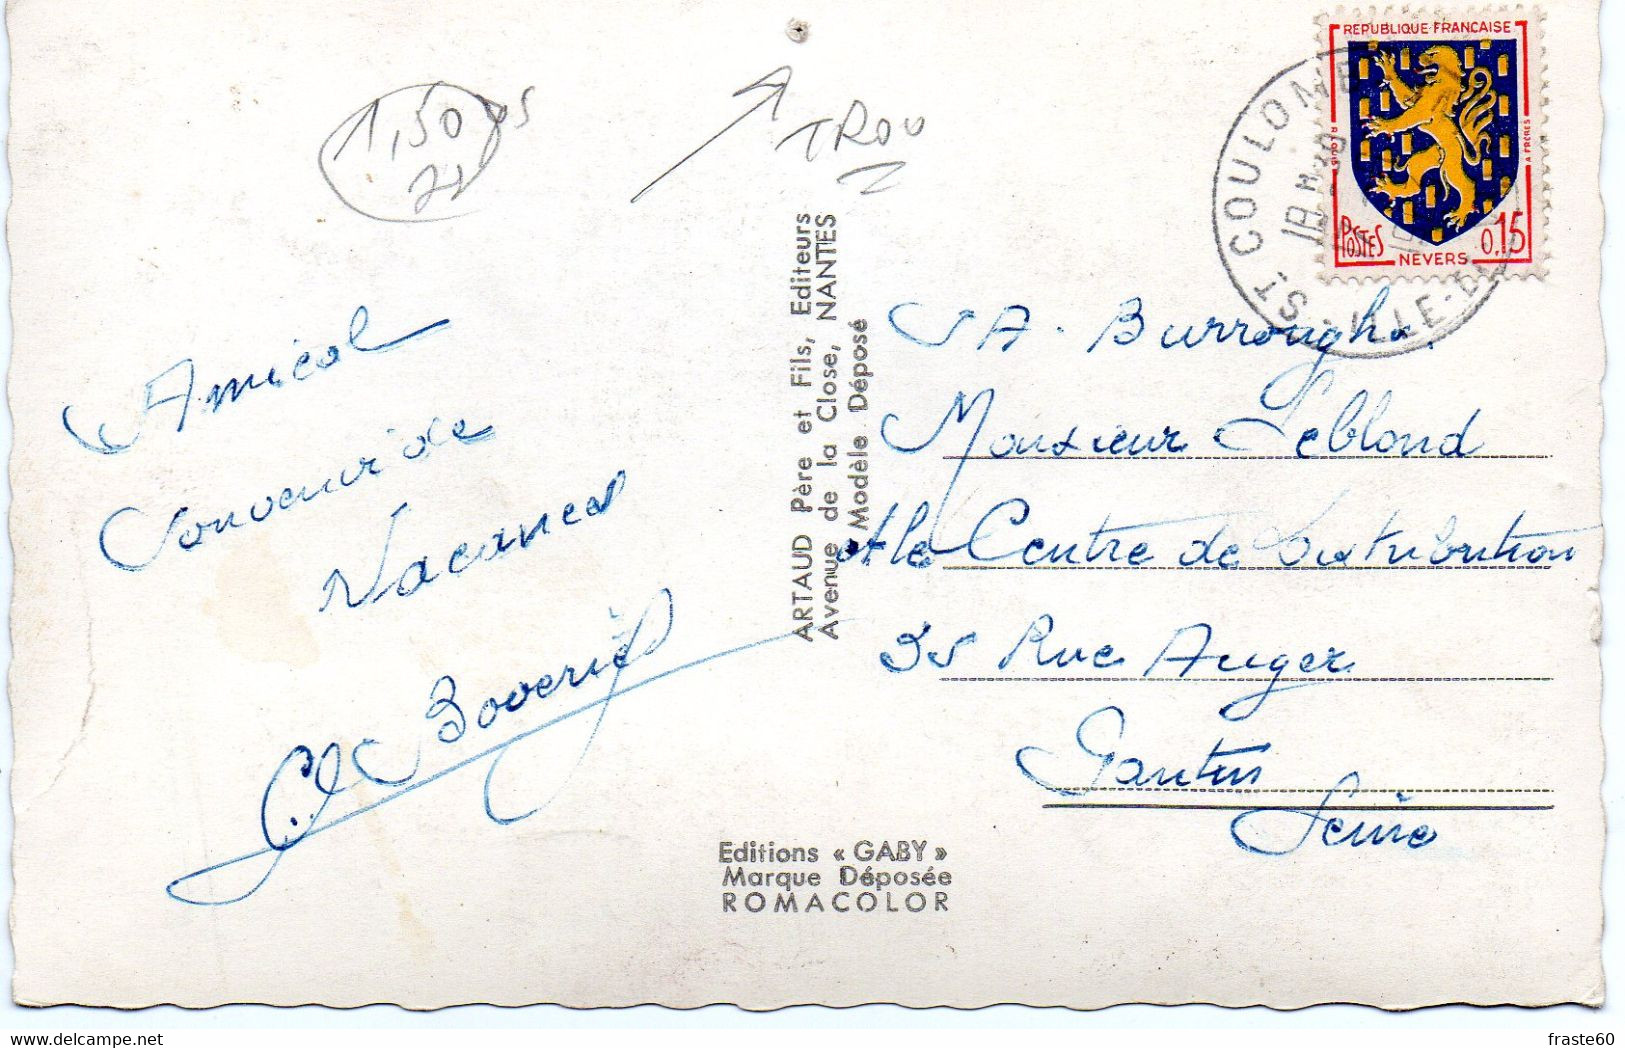 1,50
TROU
REPUBLIQUE FRANCAISE
POSTES
0,15
NEVERS
ST. COULOMB
18 H 30
ILLE-
Amical
Souvenir de
Vacances
ARTAUD Père et Fils, Editeurs
Avenue de la Close, NANTES
Modèle Déposé
SA. Burroughs.
Monsieur Leblond
Centre de Distribution
35 Rue Auger
Pantin
Seine
Editions « GABY »
Marque Déposée
ROMACOLOR
fraste60